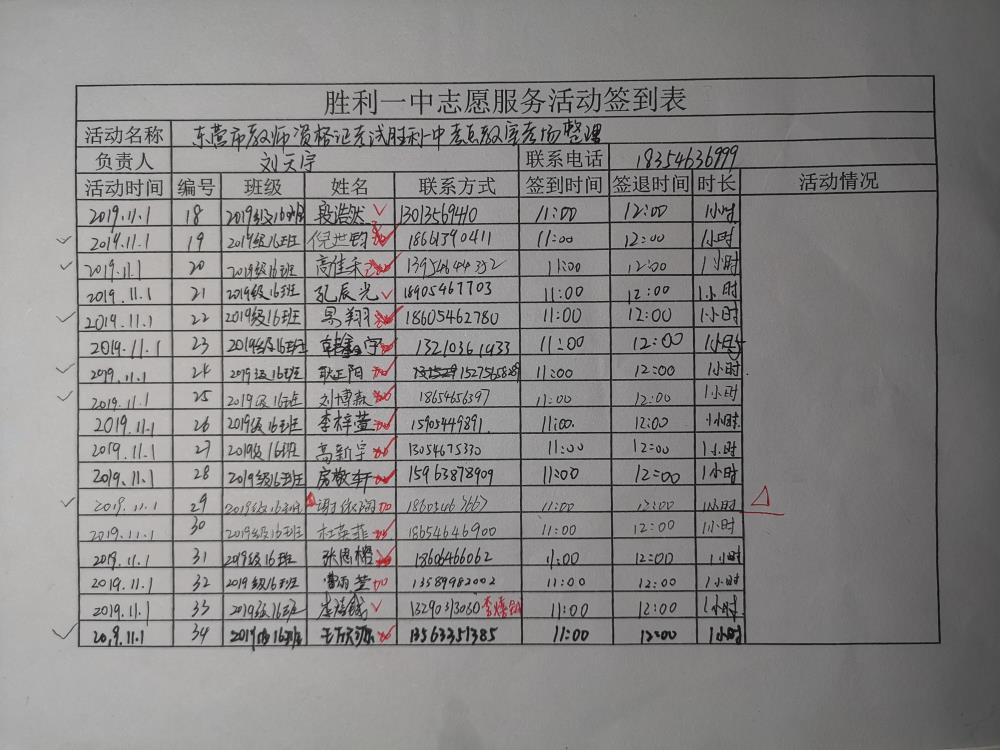 胜利一中志愿服务活动签到表
活动名称 东营市教师资格证考试胜利一中考点教室考场整理
负责人 刘天宇 联系电话 18354636999
活动时间 编号 班级 姓名 联系方式 签到时间 签退时间 时长 活动情况
2019.11.1 18 2019级16班 段浩然 11:00 12:00 1小时
2019.11.1 19 2019级16班 倪世鹤 18661390411 11:00 12:00 1小时
2019.11.1 20 2019级16班 高佳禾 13954644352 11:00 12:00 1小时
2019.11.1 21 2019级16班 孔辰光 18905467703 11:00 12:00 1小时
2019.11.1 22 2019级16班 翔 18605462780 11:00 12:00 1小时
2019.11.1 23 2019级16班 宇 13210361933 11:00 12:00 1小时
2019.11.1 24 2019级16班 耿正阳 11:00 12:00 1小时
2019.11.1 25 2019级16班 刘博森 18654656397 11:00 12:00 1小时
2019.11.1 26 2019级16班 李梓萱 15905449891 11:00 12:00 1小时
2019.11.1 27 2019级16班 高新宇 13054675330 11:00 12:00 1小时
2019.11.1 28 2019级16班 房敬轩 15963878909 11:00 12:00 1小时
2019.11.1 29 2019级16班 谢 11:00 12:00 1小时
2019.11.1 30 2019级16班 杜英菲 18654646900 11:00 12:00 1小时
2019.11.1 31 2019级16班 张恩榕 18606466062 11:00 12:00 1小时
2019.11.1 32 2019级16班 曹雨萱 13589982002 11:00 12:00 1小时
2019.11.1 33 2019级16班 11:00 12:00 1小时
2019.11.1 34 2019级16班 王欣源 13563351385 11:00 12:00 1小时